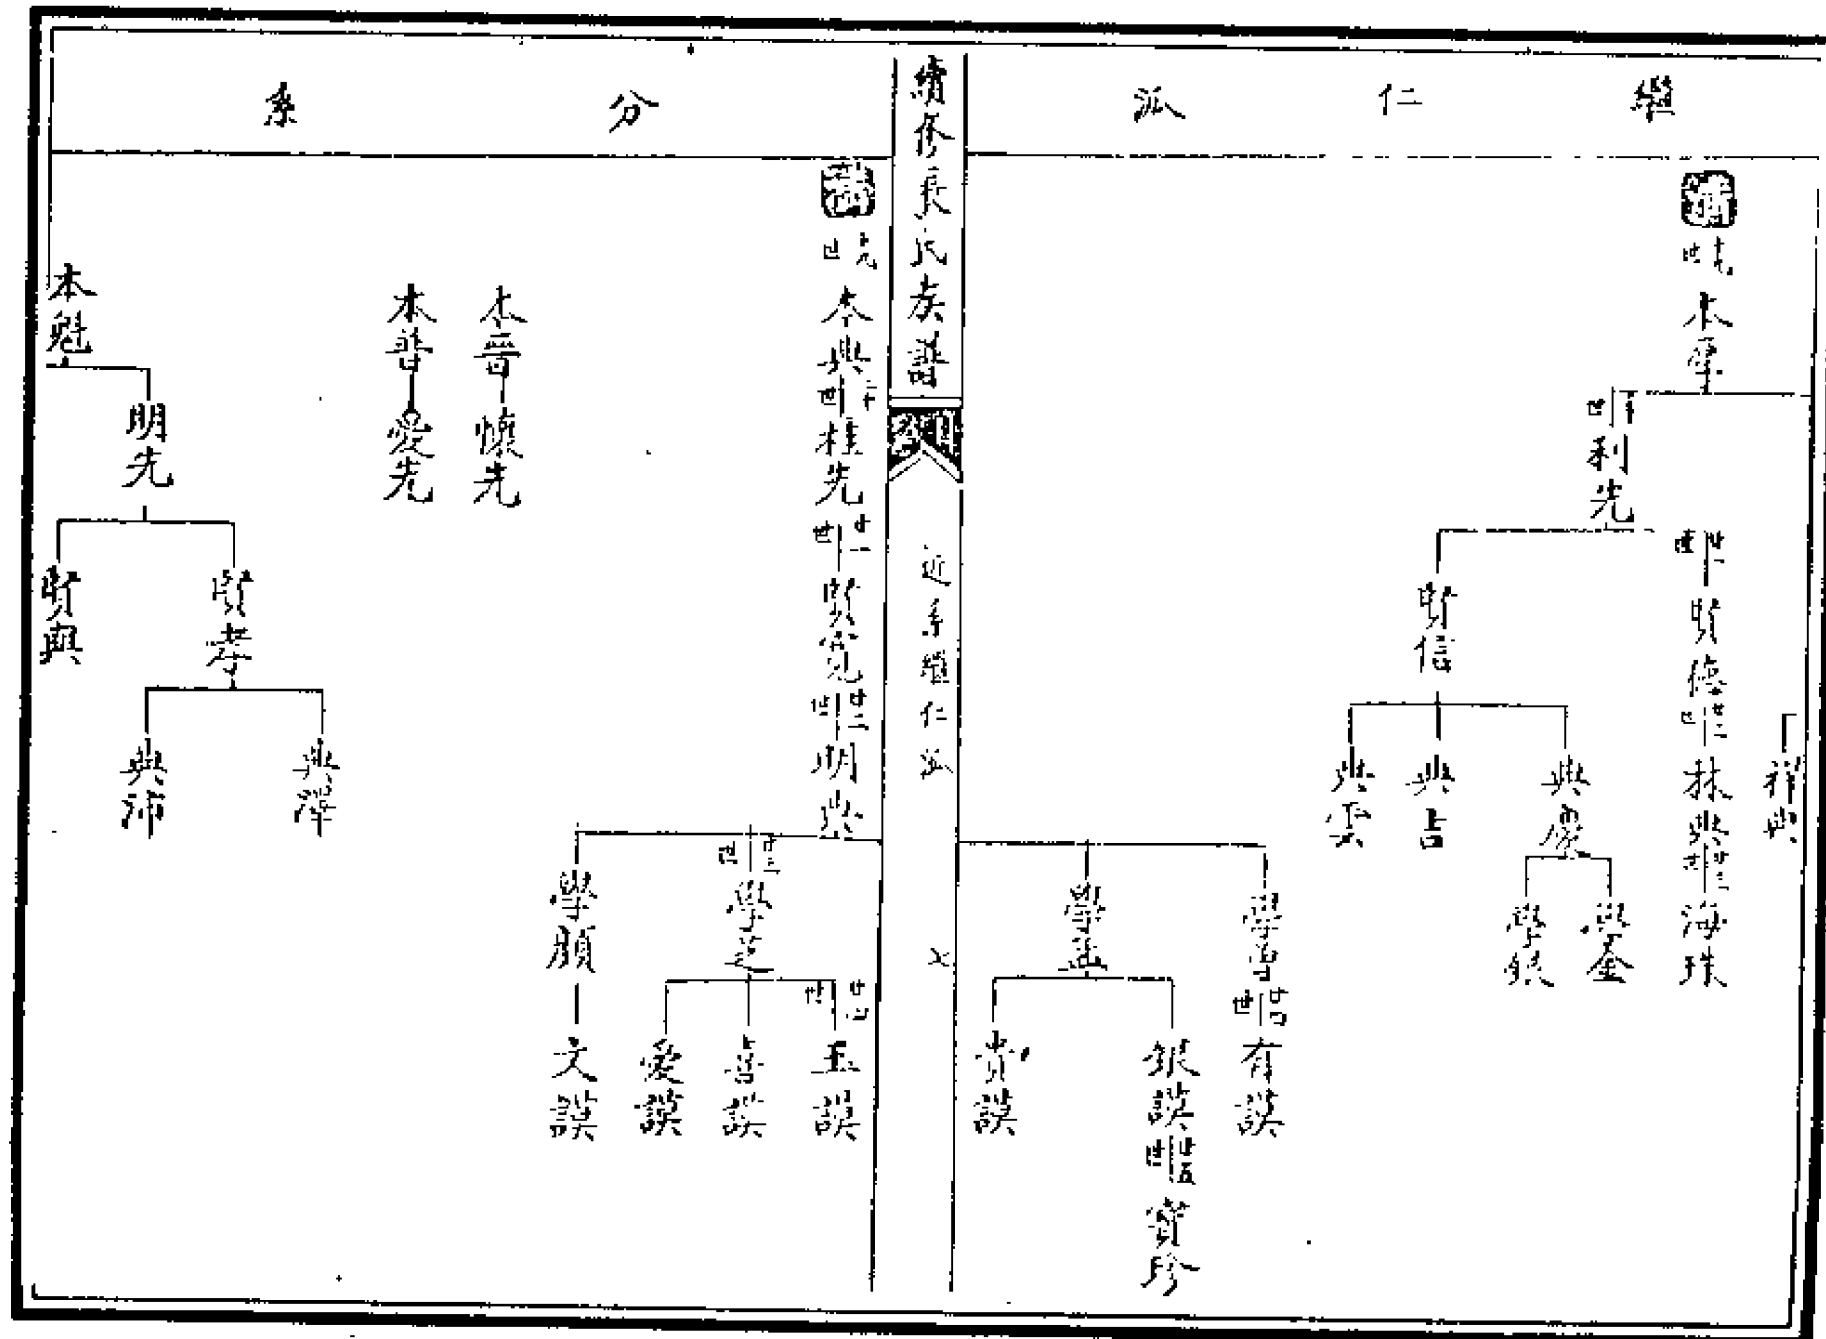 繼仁派
補
十九世
本厚
二十世
利先
廿一世
賢德
廿二世
林典
廿三世
海珠
祥典
賢信
典慶
典吉
典雲
學金
學銀
學曾
廿四世
有謨
學孟
銀謨
廿五世
寶珍
貴謨
續修長氏族譜
近系繼仁派
七
分系
補
十九世
本典
二十世
桂先
廿一世
賢寬
廿二世
明典
廿三世
學芝
廿四世
玉謨
喜謨
愛謨
學顏
文謨
本晉
懷先
本普
愛先
本魁
明先
賢孝
賢與
典澤
典沛